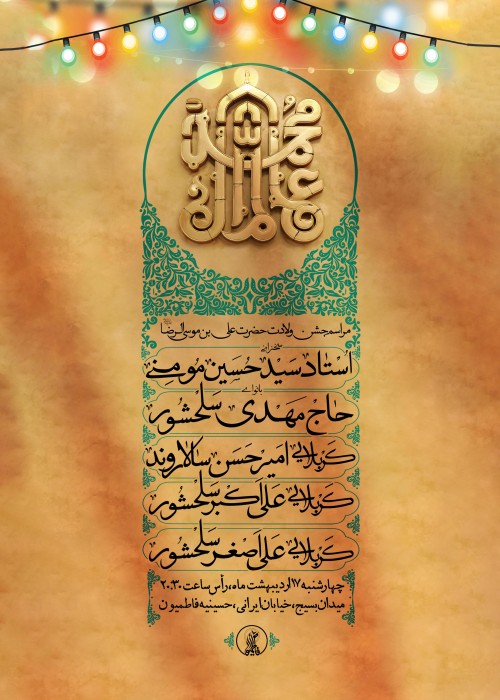 عالم آل محمد
مراسم جشن ولادت حضرت علی بن موسی الرضا
سخنرانی
استاد سید حسین مومنی
بانوای
حاج مهدی سلحشور
کربلایی امیر حسن سالاروند
کربلایی علی اکبر سلحشور
کربلایی علی اصغر سلحشور
چهارشنبه ۱۷ اردیبهشت ماه، رأس ساعت ۲۰:۳۰
میدان بسیج، خیابان ایرانی، حسینیه فاطمیون